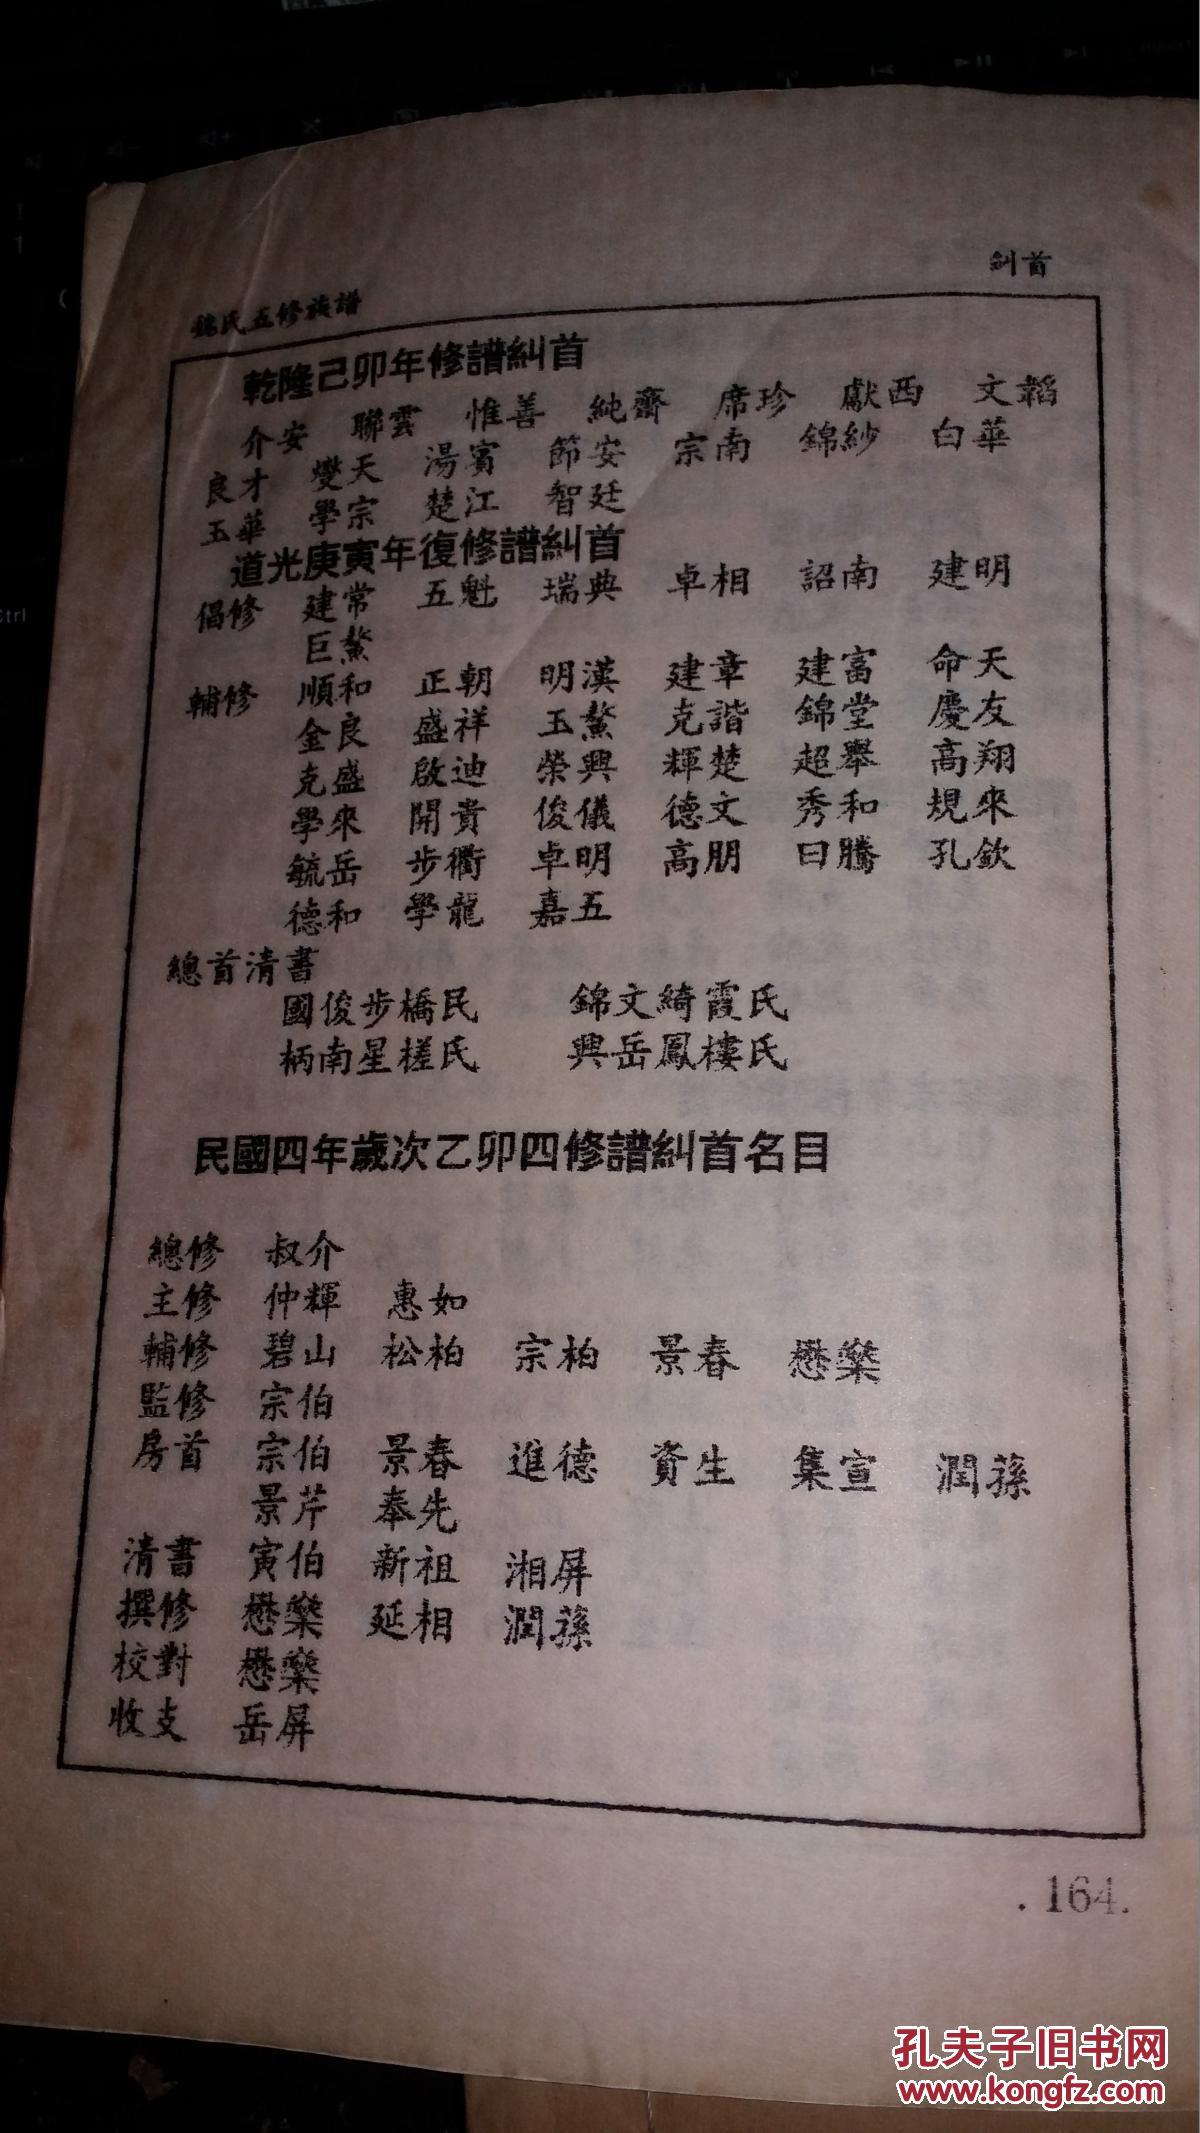 糾首
魏氏五修族譜
乾隆己卯年修譜糾首
介安 聯雲 惟善 純齋 席珍 獻西 文韜
良才 燮天 湯賓 節安 宗南 錦紗 白華
玉華 學宗 楚江 智廷
道光庚寅年復修譜糾首
倡修 建常 五魁 瑞典 卓相 詔南 建明
巨鰲
輔修 順和 正朝 明漢 建章 建富 命天
金良 盛祥 玉鰲 克諧 錦堂 慶友
克盛 啟迪 榮興 輝楚 超舉 高翔
學來 開貴 俊儀 德文 秀和 規來
毓岳 步衢 卓明 高朋 曰騰 孔欽
德和 學龍 嘉五
總首清書
國俊步橋民 錦文綺霞氏
柄南星槎氏 興岳鳳樓氏
民國四年歲次乙卯四修譜糾首名目
總修 叔介
主修 仲輝 惠如
輔修 碧山 松柏 宗柏 景春 懋樂
監修 宗伯
房首 宗伯 景春 進德 資生 集宣 潤蓀
景芹 奉先
清書 寅伯 新祖 湘屏
撰修 懋樂 延相 潤蓀
校對 懋樂
收支 岳屏
.164.
孔夫子旧书网
www.kongfz.com